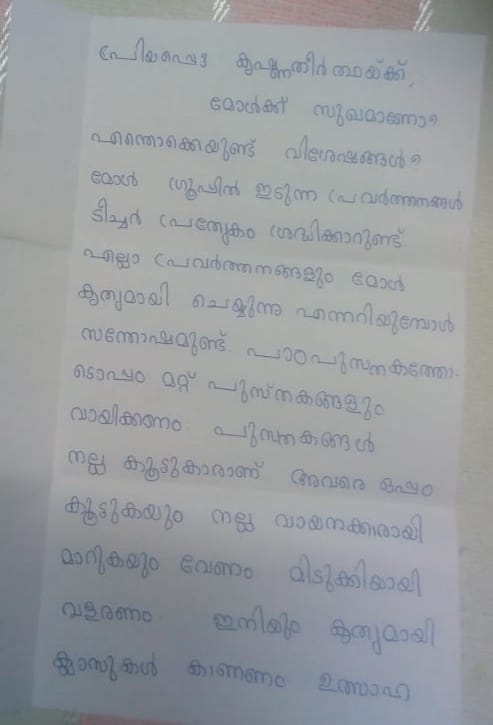 പ്രിയപ്പെട്ട കൃഷ്ണതീർത്ഥയ്ക്ക്,
മോൾക്ക് സുഖമാണോ?
എന്തൊക്കെയുണ്ട് വിശേഷങ്ങൾ?
മോൾ ഗ്രൂപ്പിൽ ഇടുന്ന പ്രവർത്തനങ്ങൾ
ടീച്ചർ പ്രത്യേകം ശ്രദ്ധിക്കാറുണ്ട്.
എല്ലാ പ്രവർത്തനങ്ങളും മോൾ
കൃത്യമായി ചെയ്യുന്നു എന്നറിയുമ്പോൾ
സന്തോഷമുണ്ട്. പാഠപുസ്തകത്തോ-
ടൊപ്പം മറ്റ് പുസ്തകങ്ങളും
വായിക്കണം. പുസ്തകങ്ങൾ
നല്ല കൂട്ടുകാരാണ് അവരെ ഒപ്പം
കൂട്ടുകയും നല്ല വായനക്കാരായി
മാറുകയും വേണം മിടുക്കിയായി
വളരണം ഇനിയും കൃത്യമായി
ക്ലാസുകൾ കാണണം ഉത്സാഹ